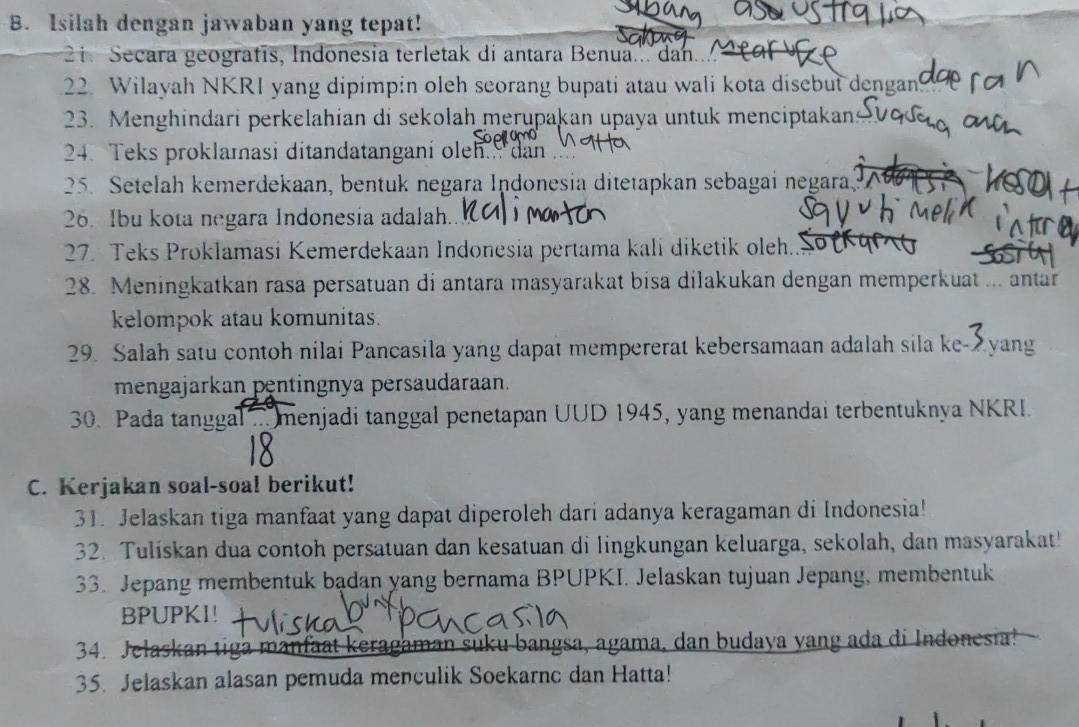 B. Isilah dengan jawaban yang tepat!
Sabang
australia
21. Secara geografis, Indonesia terletak di antara Benua... dan....
22. Wilayah NKRI yang dipimpin oleh seorang bupati atau wali kota disebut dengan.... daeran
23. Menghindari perkelahian di sekolah merupakan upaya untuk menciptakan....
soerarno hatta
24. Teks proklamasi ditandatangani oleh... dan ....
25. Setelah kemerdekaan, bentuk negara Indonesia ditetapkan sebagai negara....
26. Ibu kota negara Indonesia adalah... Kalimantan
sayuti Melik
27. Teks Proklamasi Kemerdekaan Indonesia pertama kali diketik oleh....
28. Meningkatkan rasa persatuan di antara masyarakat bisa dilakukan dengan memperkuat ... antar
kelompok atau komunitas.
29. Salah satu contoh nilai Pancasila yang dapat mempererat kebersamaan adalah sila ke-3 yang
mengajarkan pentingnya persaudaraan.
30. Pada tanggal ... menjadi tanggal penetapan UUD 1945, yang menandai terbentuknya NKRI.
18
C. Kerjakan soal-soal berikut!
31. Jelaskan tiga manfaat yang dapat diperoleh dari adanya keragaman di Indonesia!
32. Tuliskan dua contoh persatuan dan kesatuan di lingkungan keluarga, sekolah, dan masyarakat!
33. Jepang membentuk badan yang bernama BPUPKI. Jelaskan tujuan Jepang, membentuk
BPUPKI! tuliskan buny pancasila
34. Jelaskan tiga manfaat keragaman suku bangsa, agama, dan budaya yang ada di Indonesia!
35. Jelaskan alasan pemuda menculik Soekarno dan Hatta!